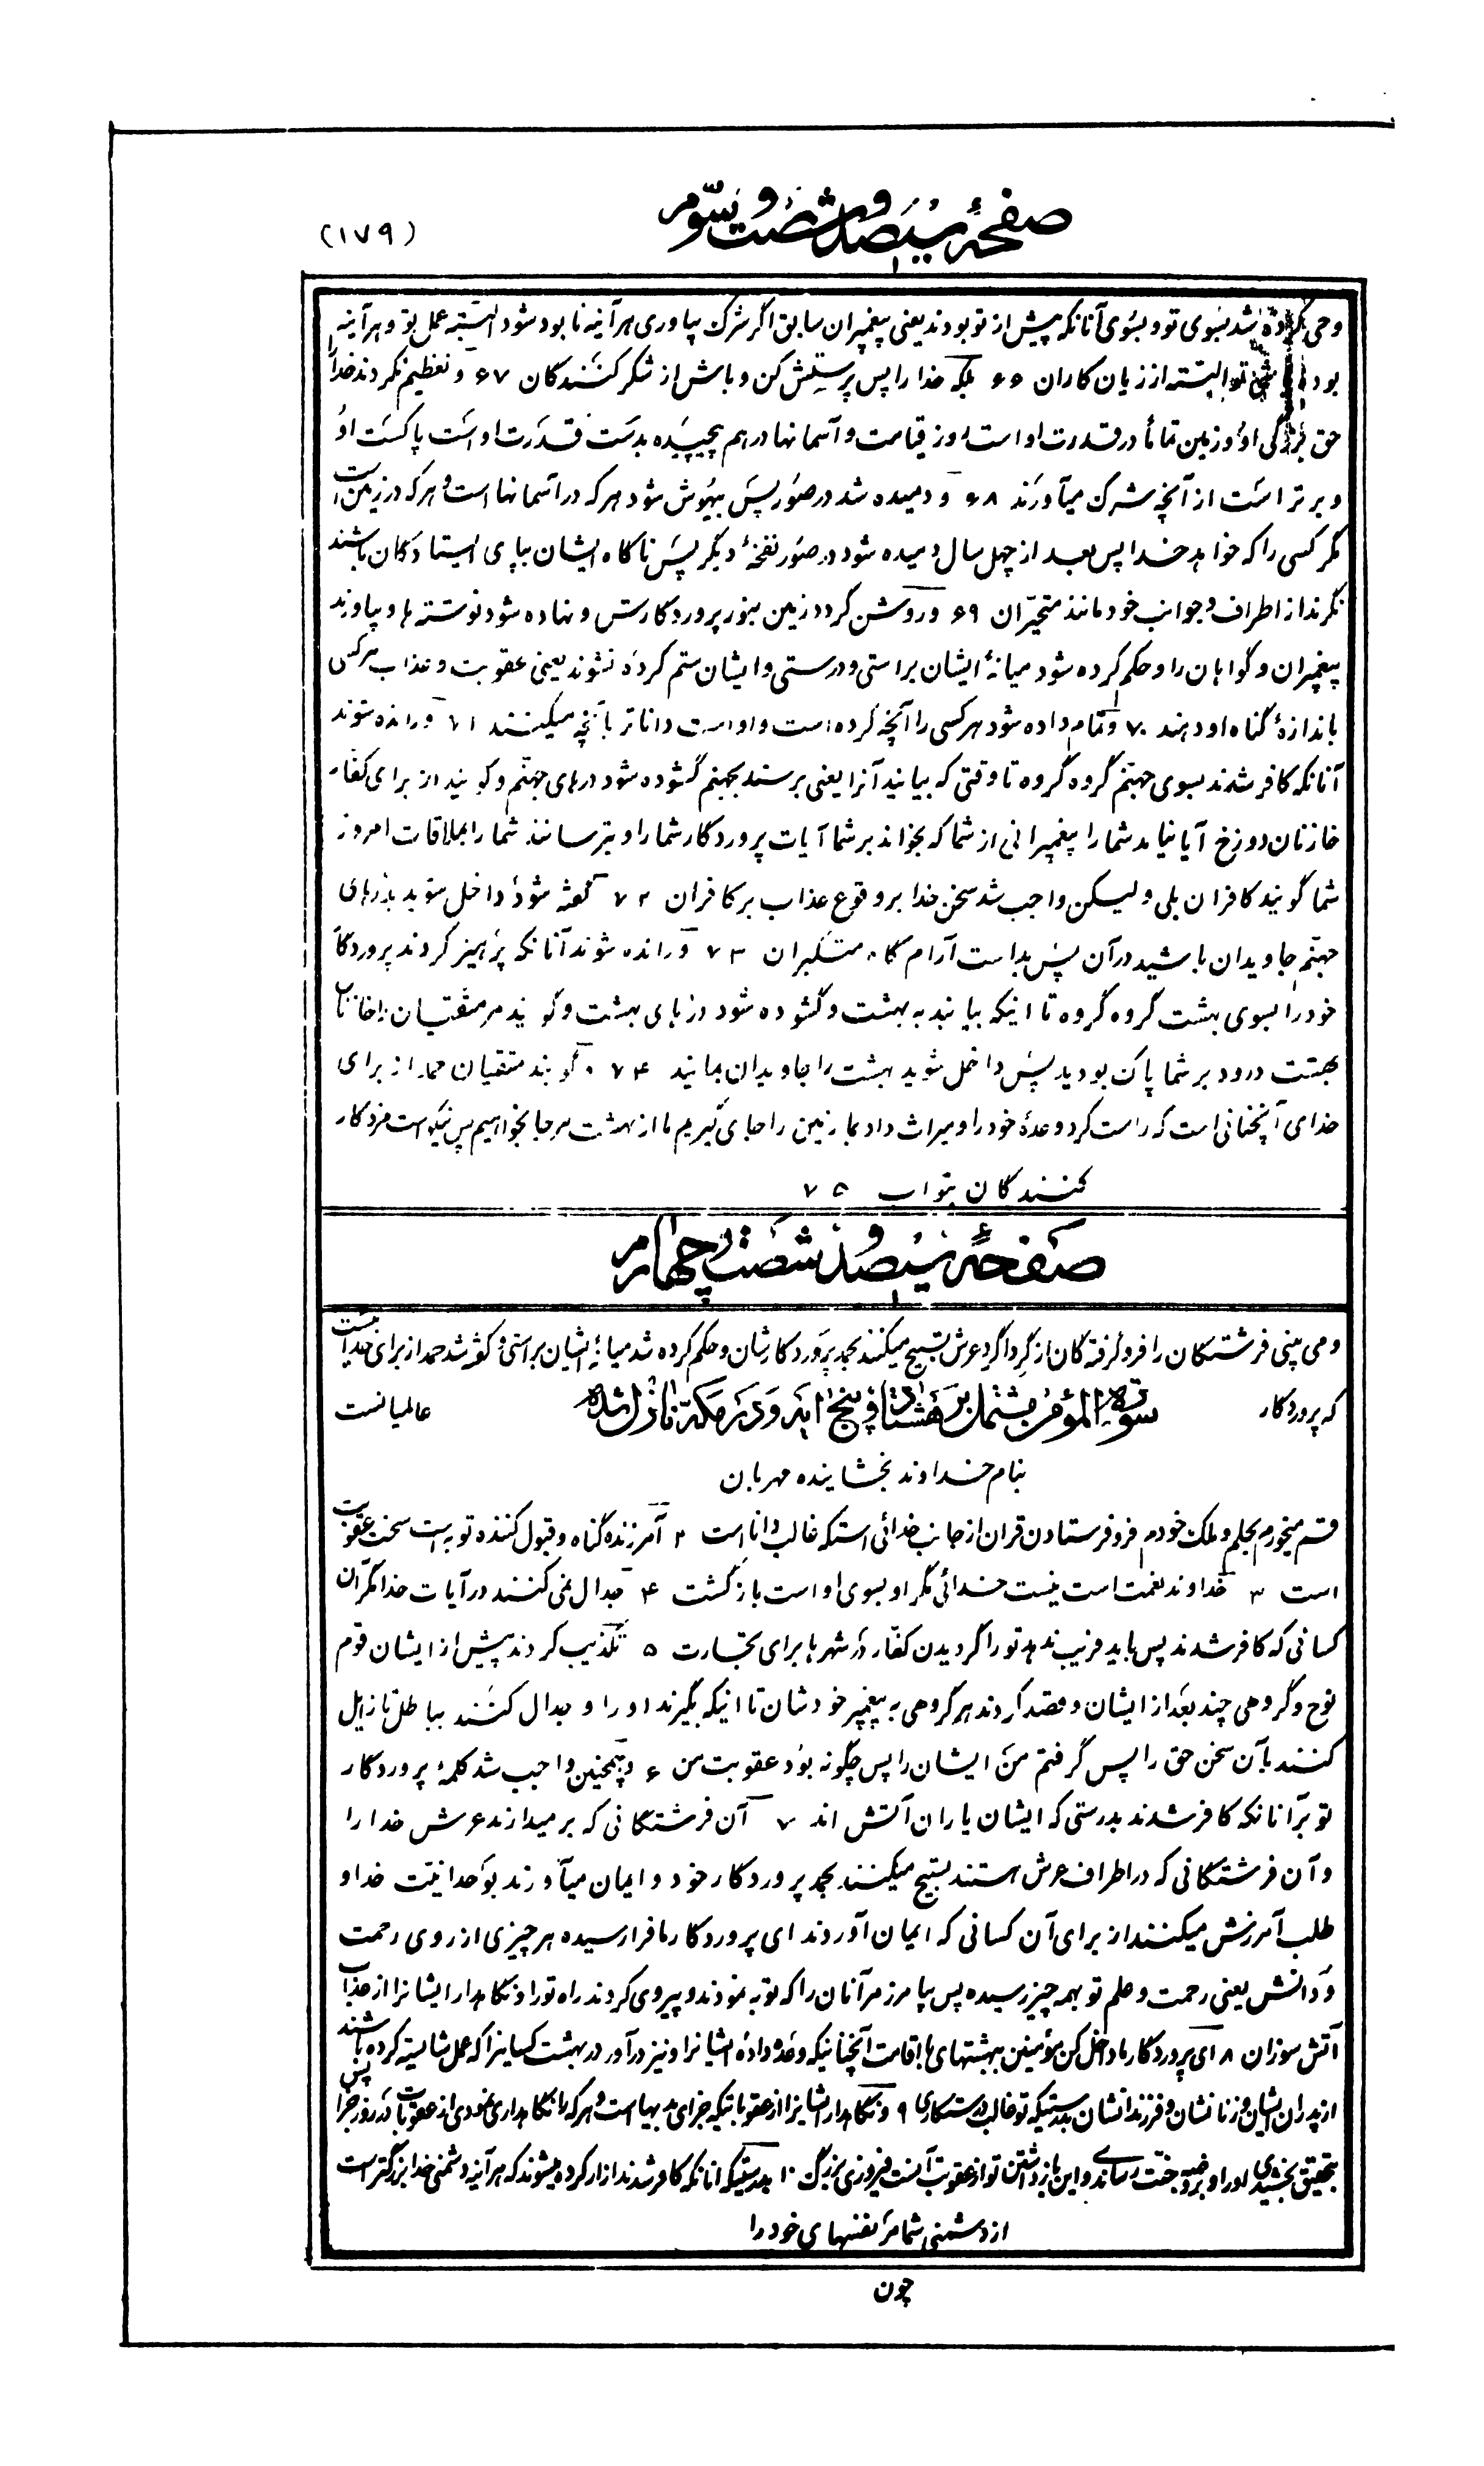 صفحهٔ سیصد و شصت و سوم
(۱۷۹)
وحی کرده شد بسوی تو و بسوی آنانکه پیش از تو بودند یعنی پیغمبران سابق اگر شرک بیاوری هرآینه نابود شود البته عمل تو و هرآینه
بود البته از زیان کاران ۶۶ بلکه خدا را پس پرستش کن و باش از شکر کنندگان ۶۷ و تعظیم نکردند خدا را
حق بزرگی او و زمین تماماً در قدرت او است روز قیامت و آسمانها درهم پیچیده بدست قدرت او است پاکست او
و برتر است از آنچه شرک میآورند ۶۸ و دمیده شد در صور پس بیهوش شود هر که در آسمانها است و هر که در زمین است
مگر کسی را که خواهد خدا پس بعد از چهل سال دمیده شود در صور نفخهٔ دیگر پس ناگاه ایشان بپای ایستادگان باشند
نگرند از اطراف و جوانب خود مانند متحیران ۶۹ و روشن گردد زمین بنور پروردگارش و نهاده شود نوشته ها و بیاورند
پیغمبران و گواهان را و حکم کرده شود میانهٔ ایشان براستی و درستی و ایشان ستم کرده نشوند یعنی عقوبت و عذاب هر کس
باندازهٔ گناه او دهند ۷۰ و تمام داده شود هر کسی را آنچه کرده است و او است داناتر بآنچه میکنند ۷۱ و رانده شوند
آنانکه کافر شدند بسوی جهنم گروه گروه تا وقتی که بیایند آنرا یعنی برسند بجهنم گشوده شود درهای جهنم و گویند از برای کفار
خازنان دوزخ آیا نیامد شما را پیغمبرانی از شما که بخواند بر شما آیات پروردگار شما را و بترسانند شما را بملاقات امروز
شما گویند کافران بلی و لیکن واجب شد سخن خدا بر وقوع عذاب بر کافران ۷۲ گفته شود داخل شوید بدرهای
جهنم جاویدان باشید در آن پس بداست آرام گاه متکبران ۷۳ و رانده شوند آنانکه پرهیز کردند پروردگار
خود را بسوی بهشت گروه گروه تا اینکه بیایند به بهشت و گشوده شود درهای بهشت و گویند مر متقیان را خازنان
بهشت درود بر شما پاک بودید پس داخل شوید بهشت را جاویدان بمانید ۷۴ و گویند متقیان حمد از برای
خدای آنچنانی است که راست کرد وعدهٔ خود را و میراث داد بما زمین را جای گیریم ما از بهشت هر جا بخواهیم پس نیکو است مزد کار
کنندگان بثواب ۷۵
صفحهٔ سیصد و شصت و چهارم
و می بینی فرشتگان را فرو گرفته گان از گرداگرد عرش تسبیح میکنند بحمد پروردگارشان و حکم کرده شد میانهٔ ایشان براستی و گفته شد حمد از برای خدا است
که پروردگار عالمیانست
سورة المؤمن مشتمل بر هشتاد و پنج ایه و در مکه نازل شده
بنام خداوند بخشاینده مهربان
قسم میخورم بحلم و ملک خودم فرو فرستادن قران از جانب خدائی استکه غالب و دانا است ۲ آمرزنده گناه و قبول کننده توبه است سخت عقوبت
است ۳ خداوند نعمت است نیست خدائی مگر او بسوی او است بازگشت ۴ جدال نمی کنند در آیات خدا مگر آن
کسانی که کافر شدند پس باید فریب ندهد تو را گردیدن کفار در شهرها برای تجارت ۵ تکذیب کردند پیش از ایشان قوم
نوح و گروهی چند بعد از ایشان و قصد کردند هر گروهی به پیغمبر خودشان تا اینکه بگیرند او را و جدال کنند بباطل تا زایل
کنند بآن سخن حق را پس گرفتم من ایشان را پس چگونه بود عقوبت من ۶ و همچنین واجب شد کلمهٔ پروردگار
تو بر آنانکه کافر شدند بدرستی که ایشان یاران آتش اند ۷ آن فرشتگانی که برمیدارند عرش خدا را
و آن فرشتگانی که در اطراف عرش هستند تسبیح میکنند بحمد پروردگار خود و ایمان میآورند بوحدانیت خدا و
طلب آمرزش میکنند از برای آن کسانی که ایمان آوردند ای پروردگار ما فرا رسیده هر چیزی از روی رحمت
و دانش یعنی رحمت و علم تو بهمه چیز رسیده پس بیامرز مر آنان را که توبه نمودند و پیروی کردند راه تو را و نگاهدار ایشانرا از عذاب
آتش سوزان ۸ ای پروردگار ما داخل کن مؤمنین ببهشتهای بااقامت آنچنانیکه وعده دادهٔ ایشانرا و نیز درآور در بهشت کسانیرا که عمل شایسته کرده باشند
از پدران ایشان و زنانشان و فرزندانشان بدرستیکه تو غالب درستکاری ۹ و نگاهدار ایشانرا از عقوباتیکه جزای بدیها است و هر که را نگاهداری نمودی از عقوبات در روز جزا پس
بتحقیق بخشیدی او را و این بازداشتن تو از عقوبت آنست فیروزی بزرگ ۱۰ بدرستیکه انانکه کافر شدند ازار کرده میشوند که هر آینه دشمنی خدا بزرگتر است
از دشمنی شما مر نفسهای خود را
چون